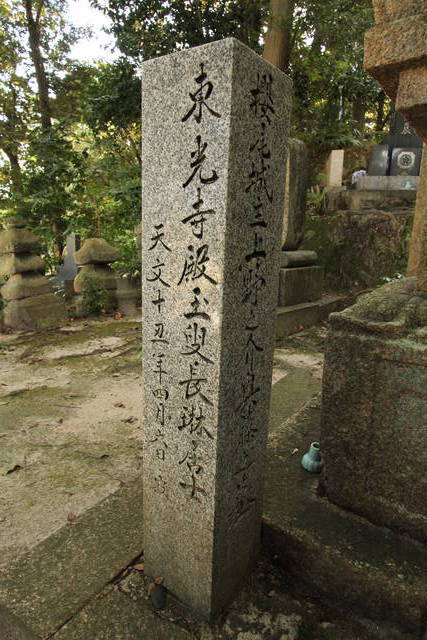 櫻尾城主上野之介
東光寺殿玉叟長琳居士
天文十五年四月六日